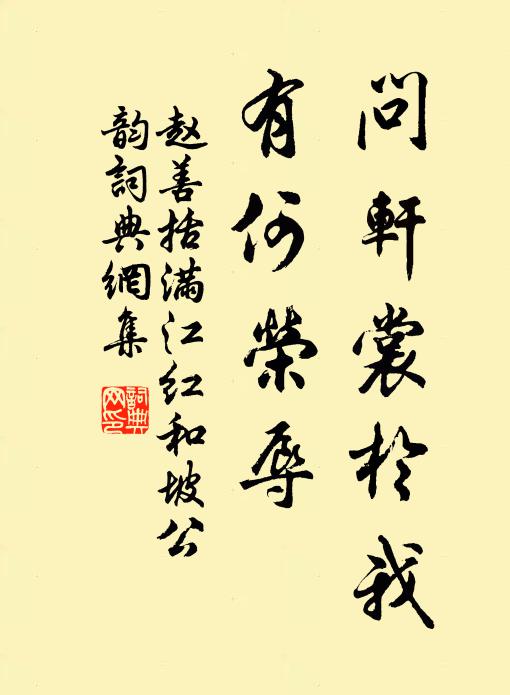 問軒裳於我
有何榮辱
赵善括满江红和坡公
韵詞典網集
詞典
网印